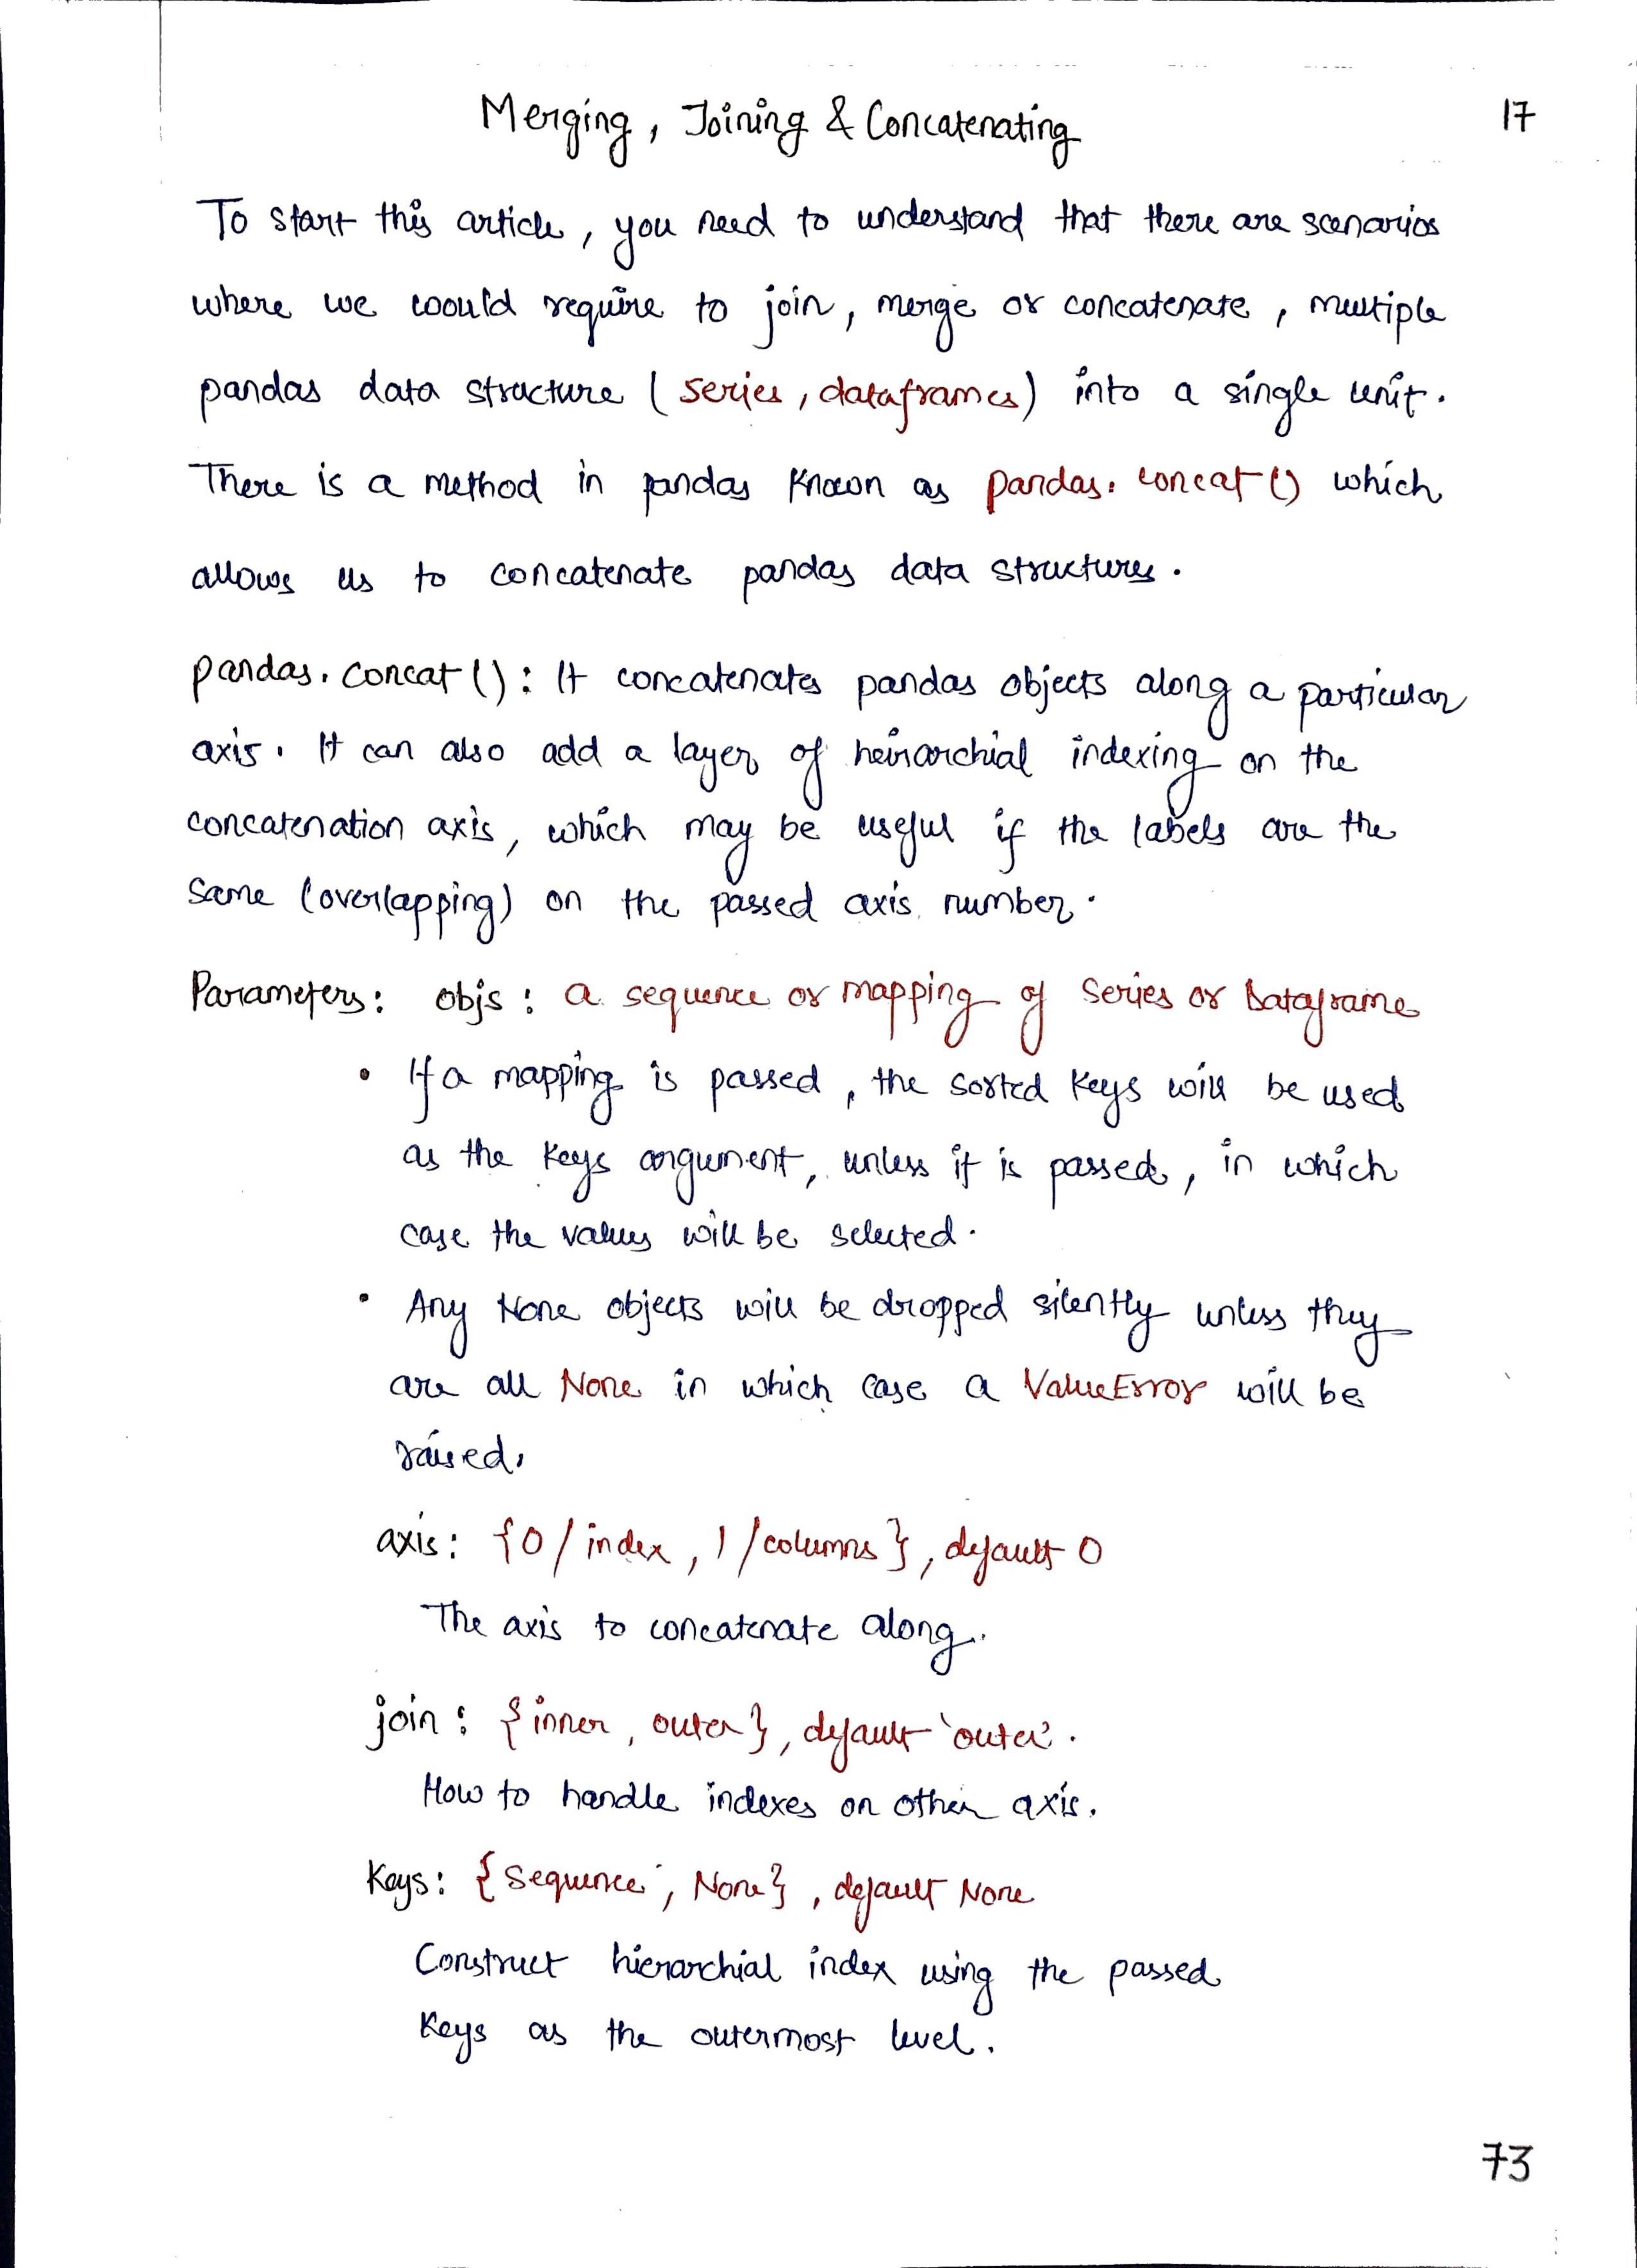 Merging, Joining & Concatenating
17
To start this article, you need to understand that there are scenarios
where we would require to join, merge or concatenate, multiple
pandas data structure (series, dataframes) into a single unit.
There is a method in pandas known as pandas.concat() which
allows us to concatenate pandas data structures.
pandas.concat(): It concatenates pandas objects along a particular
axis. It can also add a layer of heirarchial indexing on the
concatenation axis, which may be useful if the labels are the
same (overlapping) on the passed axis number.
Parameters: objs: a sequence or mapping of Series or Dataframe
• If a mapping is passed, the sorted keys will be used
as the keys argument, unless it is passed, in which
case the values will be selected.
• Any None objects will be dropped silently unless they
are all None in which case a ValueError will be
raised.
axis: {0/index, 1/columns}, default 0
The axis to concatenate along.
join: {inner, outer}, default 'outer'.
How to handle indexes on other axis.
Keys: {sequence, None}, default None
Construct hierarchial index using the passed
Keys as the outermost level.
73